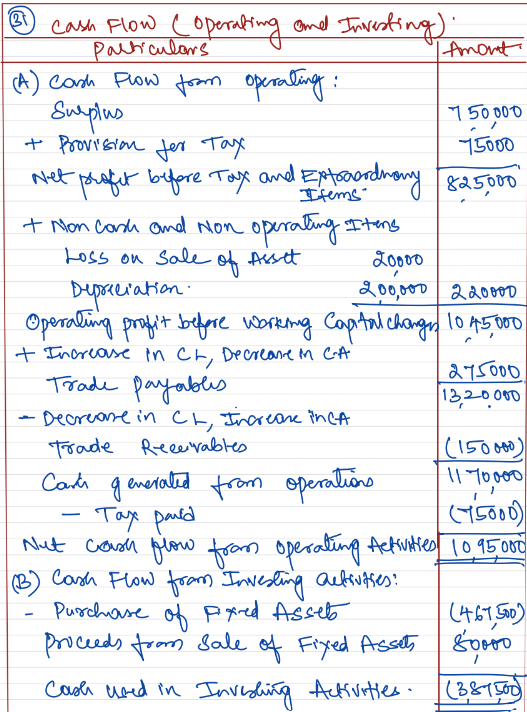 31 Cash Flow (Operating and Investing).
Particulars Amount
(A) Cash Flow from operating:
Surplus 750000
+ Provision for Tax 75000
Net profit before Tax and Extraordinary Items 825000
+ Non cash and Non operating Items
Loss on Sale of Asset 20000
Depreciation. 200,000 220000
Operating profit before working Capital changes 1045000
+ Increase in CL, Decrease in CA
Trade payables 275000
13,20,000
- Decrease in CL, Increase in CA
Trade Receivables (150000)
Cash generated from operations 1170000
- Tax paid (75000)
Net cash flow from operating Activities 1095000
(B) Cash Flow from Investing activities:
- Purchase of Fixed Assets (467,500)
proceeds from Sale of Fixed Assets 80000
Cash used in Investing Activities. (387500)